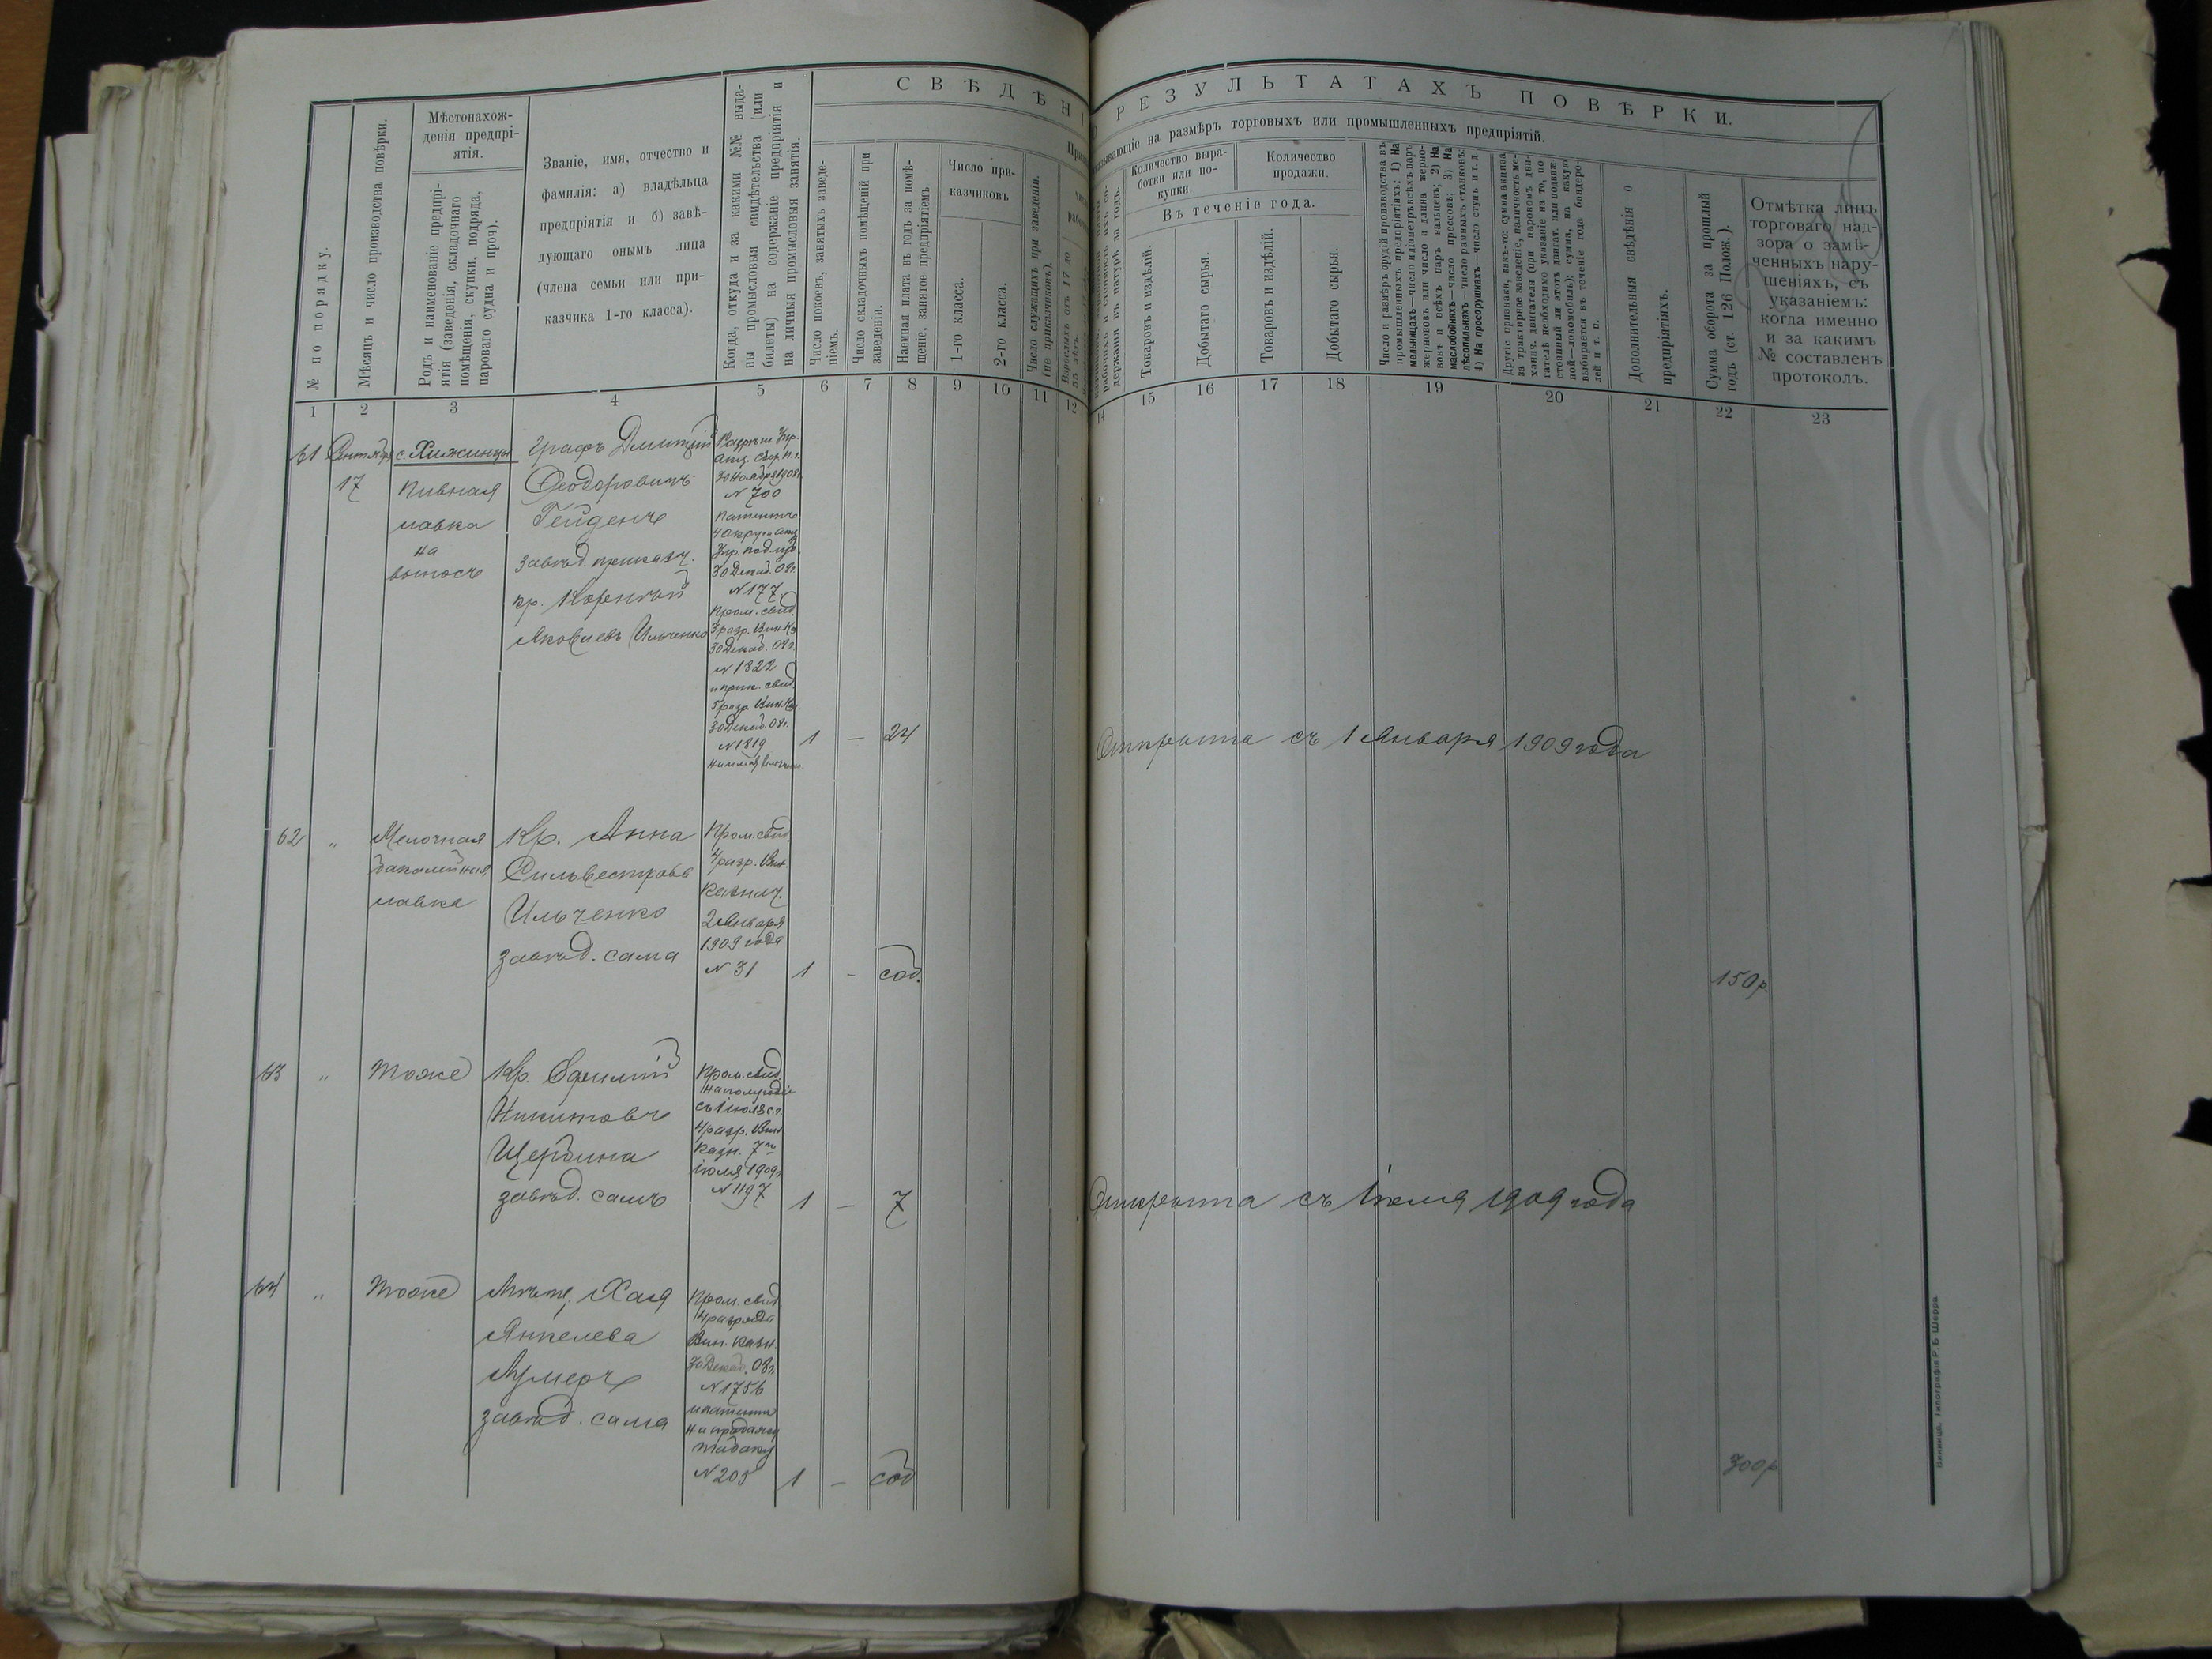 СВѢДѢНІ
О РЕЗУЛЬТАТАХЪ ПОВѢРКИ.
указывающіе на размѣръ торговыхъ или промышленныхъ предпріятій.
№ по порядку.
Мѣсяцъ и число производства повѣрки.
Мѣстонахож-
денія предпрі-
ятія.
Родъ и наименованіе предпрі-
ятія (заведенія, складочнаго
помѣщенія, скупки, подряда,
пароваго судна и проч).
Званіе, имя, отчество и
фамилія: а) владѣльца
предпріятія и б) завѣ-
дующаго онымъ лица
(члена семьи или при-
казчика 1-го класса).
Когда, откуда и за какими №№ выда-
ны промысловыя свидѣтельства (или
билеты) на содержаніе предпріятія и
на личныя промысловыя занятія.
Число покоевъ, занятыхъ заведе-
ніемъ.
Число складочныхъ помѣщеній при
заведеніи.
Наемная плата въ годъ за помѣ-
щеніе, занятое предпріятіемъ
Число при-
казчиковъ
1-го класса.
2-го класса.
Число служащихъ при заведеніи.
(не приказчиковъ).
Количество выра-
ботки или по-
купки.
Количество
продажи.
Въ теченіе года.
Товаровъ и издѣлій.
Добытаго сырья.
Товаровъ и издѣлій.
Добытаго сырья.
Число и размѣръ орудій производства въ
промышленныхъ предпріятіяхъ: 1) На
мельницахъ—число и діаметръ всѣхъ паръ
жернововъ или число и длина жерно-
вовъ и всѣхъ паръ вальцевъ; 2) На
маслобойняхъ—число прессовъ; 3) На
лѣсопильняхъ—число рамныхъ станковъ:
4) На просорушкахъ—число ступъ и т. д.
Другіе признаки, какъ-то: сумма акциза
за трактирное заведеніе, наличность ме-
ханич. двигателя (при паровомъ дви-
гателѣ необходимо указаніе на то, по
стоянный ли этотъ двигат. или подвиж-
ной—локомобиль); сумма, на какую
выбирается въ теченіе года бандеро-
лей и т. п.
Дополнительныя свѣдѣнія о
предпріятіяхъ.
Сумма оборота за прошлый
годъ (ст. 126 Полож.).
Отмѣтка лицъ
торговаго над-
зора о замѣ-
ченныхъ нару-
шеніяхъ, съ
указаніемъ:
когда именно
и за какимъ
№ составленъ
протоколъ.
1 2 3 4 5 6 7 8 9 10 11 12 14 15 16 17 18 19 20 21 22 23
61 Сентября 17
с. Хижинцы
Пивная
лавка
на
выносъ
Графъ Дмитрій
Феодоровичъ
Гейденъ
завѣд. приказч.
кр. Корнилій
Яковлевъ Ильченко
Разрѣш. Упр.
Акц. Сбор. П. г.
30 Ноября 1908 г.
N 700
патентъ
4 Округа Акц.
Упр. Под. губ.
30 Декаб. 08 г.
N 177
пром. свид.
3 разр. Вин. Каз.
30 Декаб. 08 г.
N 1822
и прик. свид.
5 разр. Вин. Каз.
30 Декаб. 08 г.
N 1819
1 — 24
Открыта съ 1 Января 1909 года
62 „
Мелочная
бакалейная
лавка
Кр. Анна
Сильвестрова
Ильченко
завѣд. сама
Пром. свид.
4 разр. Вин.
Казнач.
2 Января
1909 года
N 31
1 - соб.
150 р.
63 „
Тоже
Кр. Ефимій
Никитовъ
Щербина
завѣд. самъ
Пром. свид.
на полугодіе
съ 1 іюля с. г.
4 разр. Вин.
Казн. 7го
іюля 1909 г.
N 1197
1 — 7
Открыта съ 1 іюля 1909 года
64 „
Тоже
Мѣщ. Хая
Янкелева
завѣд. сама
Пром. свид.
4 разряда
Вин. Казн.
30 Декаб. 08 г.
N 1756
и патентъ
на продажу
табаку
N 205
1 — соб
700 р
Винница, Типографія Р. Б. Шерра.